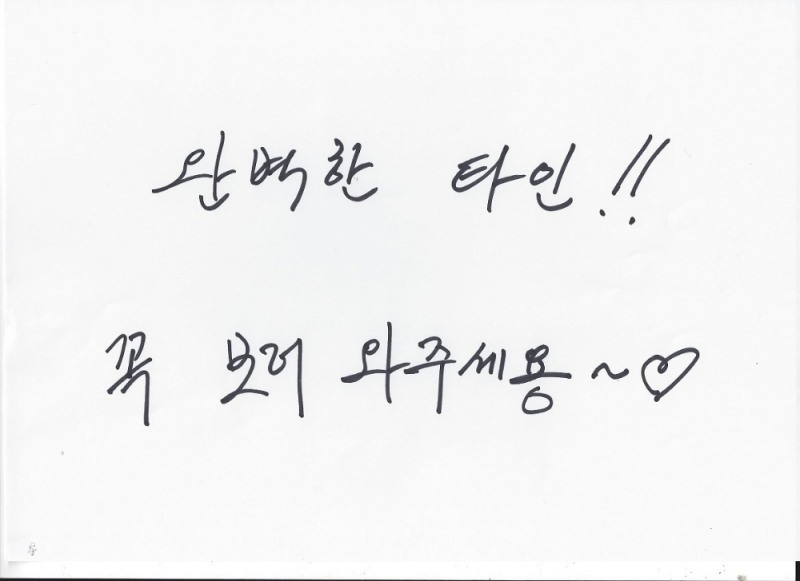 완벽한 타인!!
꼭 보러 와주세용~♡